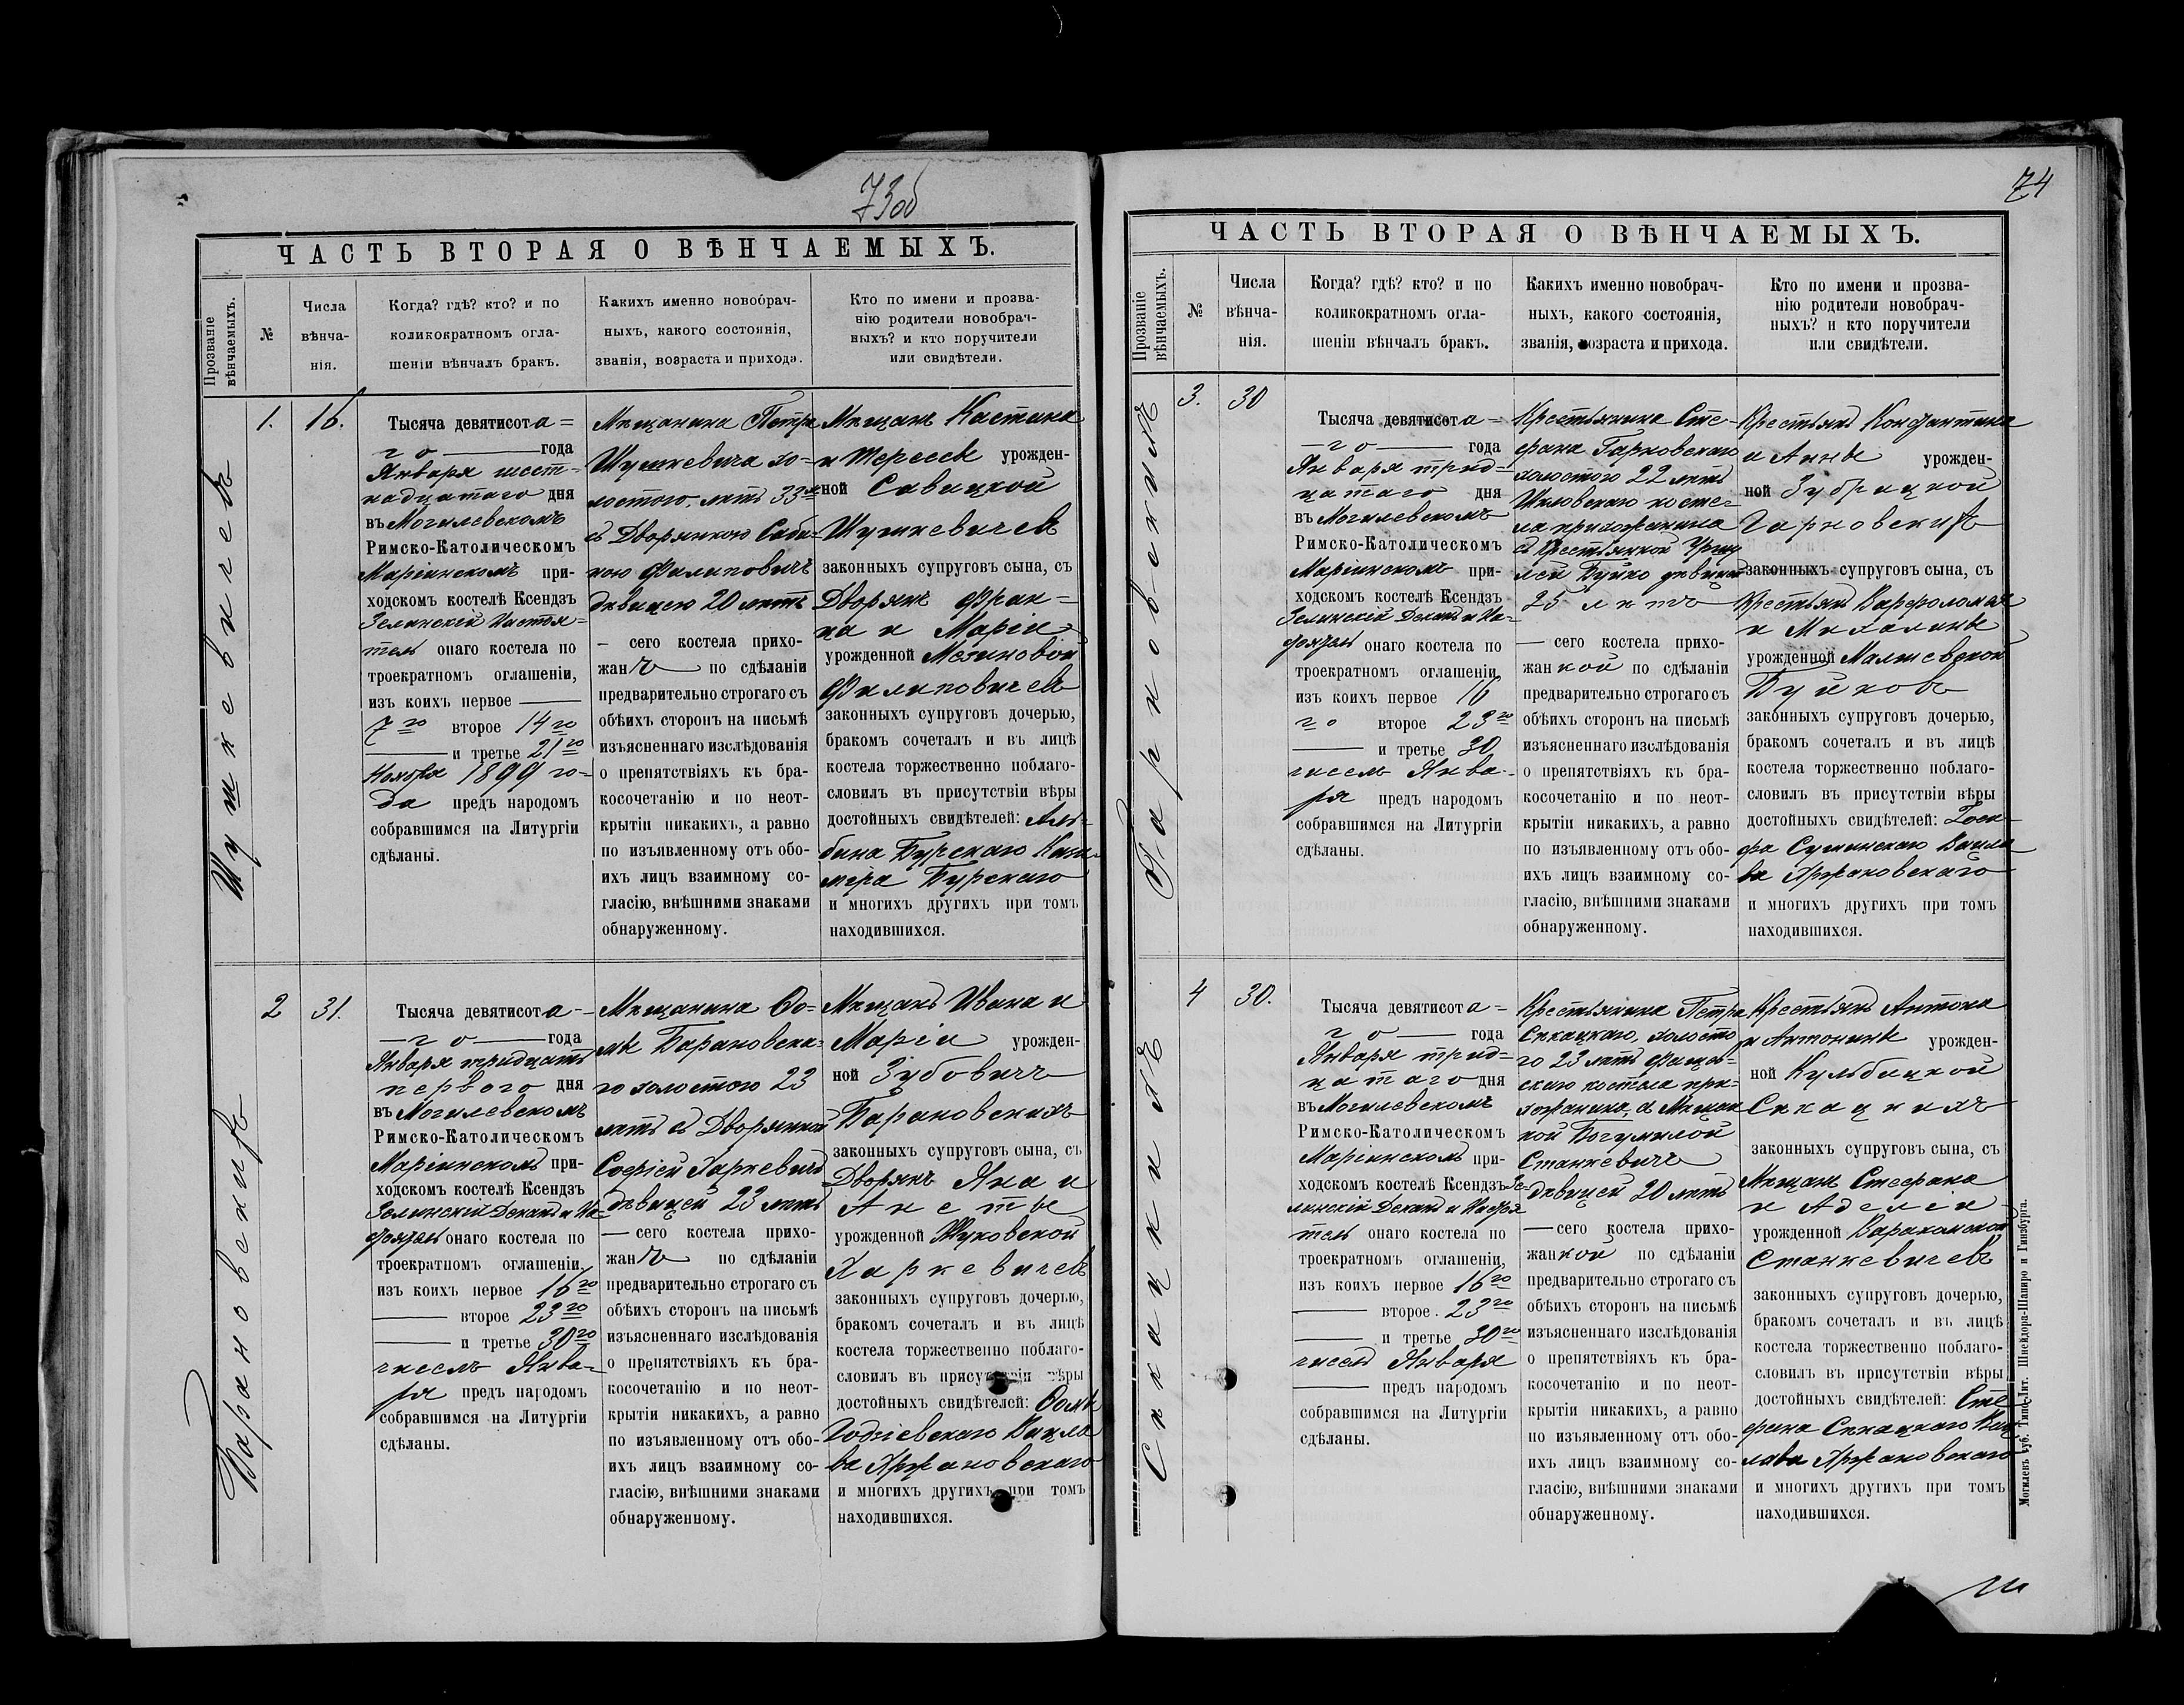 73об
ЧАСТЬ ВТОРАЯ О ВѢНЧАЕМЫХЪ.
Прозваніе вѣнчаемыхъ.
№
Числа вѣнча-нія.
Когда? гдѣ? кто? и по
коликократномъ огла-
шеніи вѣнчалъ бракъ.
Какихъ именно новобрач-
ныхъ, какого состоянія,
званія, возраста и прихода.
Кто по имени и прозва-
нію родители новобрач-
ныхъ? и кто поручители
или свидѣтели.
Шушкевичевъ
1.
16.
Тысяча девятисота=
го года
Января шест-
надцатаго дня
въ Могилевскомъ
Римско-Католическомъ
Маріинскомъ при-
ходскомъ костелѣ Ксендзъ
Зелинскій Настоя-
тель онаго костела по
троекратномъ оглашеніи,
изъ коихъ первое
7го второе 14го
и третье 21го
Ноября 1899 го-
да предъ народомъ
собравшимся на Литургіи
сдѣланы.
Мѣщанина Петра
Шушкевича хо-
лостого, лѣтъ 33хъ
съ Дворянкою Саби-
ною Филиповичъ
дѣвицею 20 лѣтъ
— сего костела прихо-
жанъ по сдѣланіи
предварительно строгаго съ
обѣихъ сторонъ на письмѣ
изъясненнаго изслѣдованія
о препятствіяхъ къ бра-
косочетанію и по неот-
крытіи никакихъ, а равно
по изъявленному отъ обо-
ихъ лицъ взаимному со-
гласію, внѣшними знаками
обнаруженному.
Мѣщанъ Кастана
и Терессы урожден-
ной Савицкой
Шушкевичевъ
законныхъ супруговъ сына, съ
Дворянъ Фран=
ца и Маріи
урожденной
Филиповичевъ
законныхъ супруговъ дочерью,
бракомъ сочеталъ и въ лицѣ
костела торжественно поблаго-
словилъ въ присутствіи вѣры
достойныхъ свидѣтелей: Аль-
бина Бурскаго Кази-
мера Бурскаго
и многихъ другихъ при томъ
находившихся.
Барановскихъ
2
31.
Тысяча девятисота-
—го—года
Января тридцать
перваго дня
въ Могилевскомъ
Римско-Католическомъ
Маріинскомъ при-
ходскомъ костелѣ Ксендзъ
Зелинскій Деканъ и На-
стоятель онаго костела по
троекратномъ оглашеніи,
изъ коихъ первое 16го
второе 23го
и третье 30го
чиселъ Янва-
ря предъ народомъ
собравшимся на Литургіи
сдѣланы.
Мѣщанина Ѳо-
мы Барановска-
го холостого 23
лѣтъ съ Дворянкой
Софіей Харкевичъ
дѣвицей 23 лѣтъ
— сего костела прихо-
жанъ по сдѣланіи
предварительно строгаго съ
обѣихъ сторонъ на письмѣ
изъясненнаго изслѣдованія
о препятствіяхъ къ бра-
косочетанію и по неот-
крытіи никакихъ, а равно
по изъявленному отъ обо-
ихъ лицъ взаимному со-
гласію, внѣшними знаками
обнаруженному.
Мѣщанъ Ивана и
Маріи урожден-
ной Зубовичъ
Барановскихъ
законныхъ супруговъ сына, съ
Дворянъ Яна и
Анеты
урожденной Жуковской
Харкевичевъ
законныхъ супруговъ дочерью,
бракомъ сочеталъ и въ лицѣ
костела торжественно поблаго-
словилъ въ присутствіи вѣры
достойныхъ свидѣтелей: Ѳомы
Годзіевскаго Вацла
ва Аржановскаго
и многихъ другихъ при томъ
находившихся.
74
ЧАСТЬ ВТОРАЯ О ВѢНЧАЕМЫХЪ.
Прозваніе вѣнчаемыхъ.
№
Числа вѣнча-нія.
Когда? гдѣ? кто? и по
коликократномъ огла-
шеніи вѣнчалъ бракъ.
Какихъ именно новобрач-
ныхъ, какого состоянія,
званія, возраста и прихода.
Кто по имени и прозва-
нію родители новобрач-
ныхъ? и кто поручители
или свидѣтели.
Гарновскихъ
3.
30
Тысяча девятисота=
—го— года
Января трид-
цатаго дня
въ Могилевскомъ
Римско-Католическомъ
Маріинскомъ при-
ходскомъ костелѣ Ксендзъ
Зелинскій Деканъ и На-
стоятель онаго костела по
троекратномъ оглашеніи,
изъ коихъ первое 16
го второе 23го
и третье 30
чиселъ Янва-
ря предъ народомъ
собравшимся на Литургіи
сдѣланы.
Крестьянина Сте-
фана Гарновскаго
холостого 22 лѣтъ
Шкловскаго косте-
ла прихожанина
съ Крестьянкой Уршу
лей Буйко дѣвицей
25 лѣтъ
— сего костела прихо-
жанкой по сдѣланіи
предварительно строгаго съ
обѣихъ сторонъ на письмѣ
изъясненнаго изслѣдованія
о препятствіяхъ къ бра-
косочетанію и по неот-
крытіи никакихъ, а равно
по изъявленному отъ обо-
ихъ лицъ взаимному со-
гласію, внѣшними знаками
обнаруженному.
Крестьянъ Константина
и Анны урожден-
ной Зубрицкой
Гарновскихъ
законныхъ супруговъ сына, съ
Крестьянъ Варфоломея
и Михалины
урожденной Малишевской
Буйковъ
законныхъ супруговъ дочерью,
бракомъ сочеталъ и въ лицѣ
костела торжественно поблаго-
словилъ въ присутствіи вѣры
достойныхъ свидѣтелей: Іоси-
фа Сушинскаго Вацла
ва Аржановскаго
и многихъ другихъ при томъ
находившихся.
Сккацкихъ
4
30.
Тысяча девятисота=
го года
Января трид-
цатаго дня
въ Могилевскомъ
Римско-Католическомъ
Маріинскомъ при-
ходскомъ костелѣ Ксендзъ Зе-
линскій Деканъ и Настоя-
тель онаго костела по
троекратномъ оглашеніи,
изъ коихъ первое 16го
второе 23го
и третье 30го
чиселъ Января
предъ народомъ
собравшимся на Литургіи
сдѣланы.
Крестьянина Петра
Сккацкаго, холосто
го 23 лѣтъ Фащев-
скаго костела при-
хожанина, съ Мѣщан
кой Богумилой
Станкевичъ
дѣвицей 20 лѣтъ
—сего костела прихо-
жанкой по сдѣланіи
предварительно строгаго съ
обѣихъ сторонъ на письмѣ
изъясненнаго изслѣдованія
о препятствіяхъ къ бра-
косочетанію и по неот-
крытіи никакихъ, а равно
по изъявленному отъ обо-
ихъ лицъ взаимному со-
гласію, внѣшними знаками
обнаруженному.
Крестьянъ Антона
и Антонины урожден-
ной Кульбицкой
Сккацкихъ
законныхъ супруговъ сына, съ
Мѣщанъ Стефана
и Аделіи
урожденной
Станкевичевъ
законныхъ супруговъ дочерью,
бракомъ сочеталъ и въ лицѣ
костела торжественно поблаго-
словилъ въ присутствіи вѣры
достойныхъ свидѣтелей: Сте
фана Сккацкаго Вац
лава Аржановскаго
и многихъ другихъ при томъ
находившихся.
Могилевъ губ. Типо-Лит. Шнейдора-Шапиро и Гинзбурга.